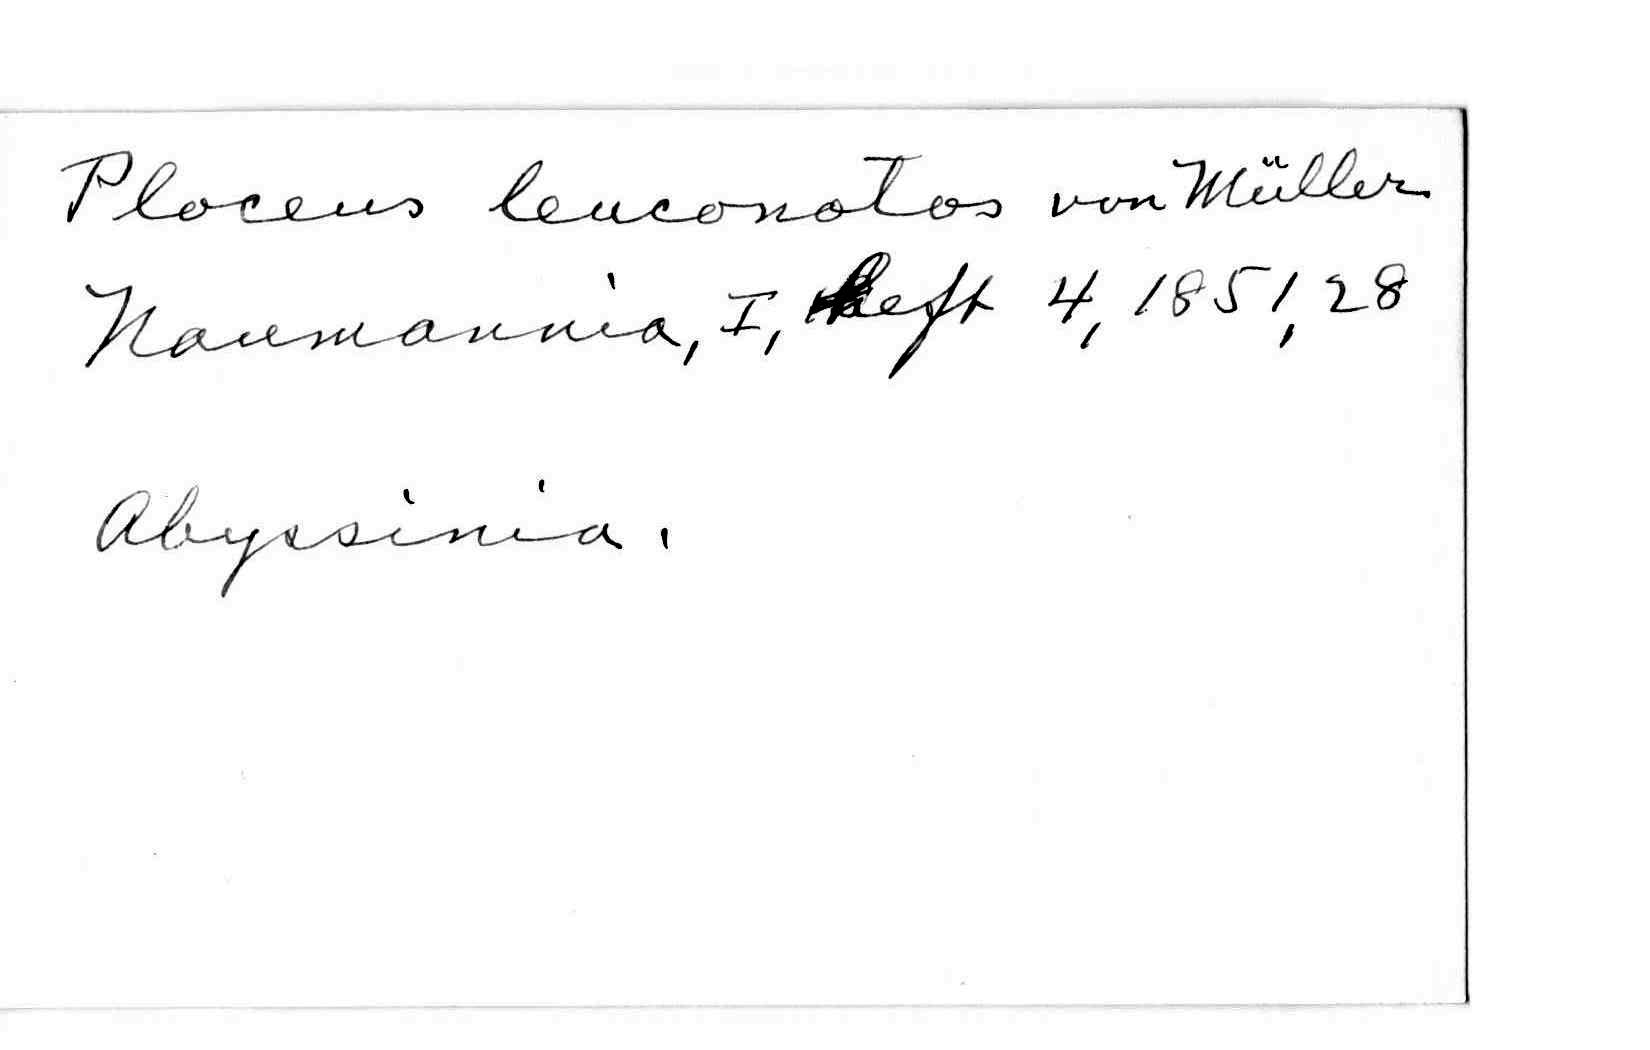 Ploceus leuconotos von Müller
Naumannia, I, heft 4, 1851, 28
Abyssinia.